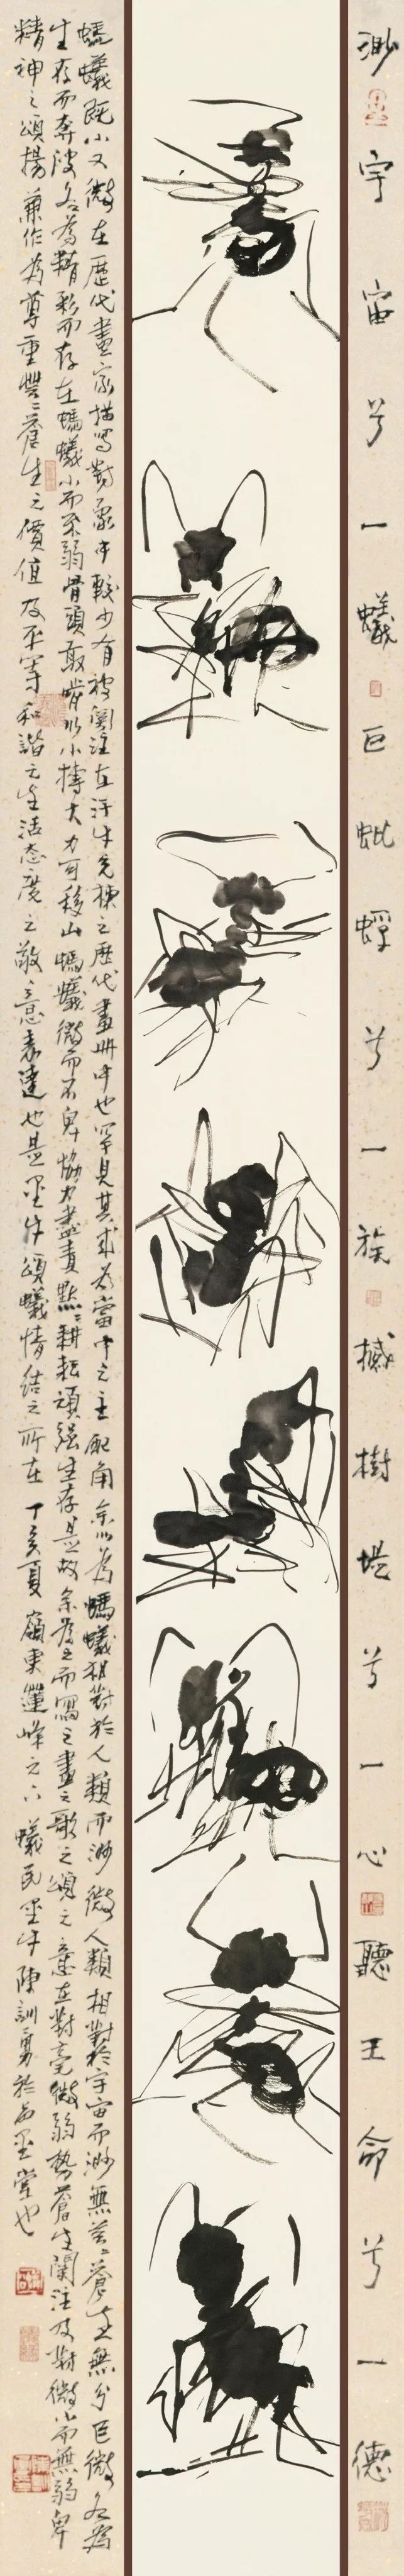 渺宇宙兮一蟻巨蚍蜉兮一族撼樹堤兮一心聽王命兮一德
螞蟻既小又微在歷代畫家描寫對象中較少有被關注在汗牛充棟之歷代畫冊中也罕見其成為當中之主配角余以為螞蟻相對於人類而渺微人類相對於宇宙而渺無蒼生無分巨微各為
生存而奔波各為精彩而存在螞蟻小而柔弱骨頭敢啃以小搏大力可移山螞蟻微而不卑協力盡責默默耕耘頑強生存是故余為之而寫之畫之歌之頌之意在對毫微弱勢蒼生關注及對微小而無弱卑
精神之頌揚兼作為尊重芸芸蒼生之價值及平等和諧之生活态度之敬意表達也是墨牛頌蟻情結之所在丁亥夏嶺東蓮峰之下蟻民墨牛陳訓勇於墨堂也